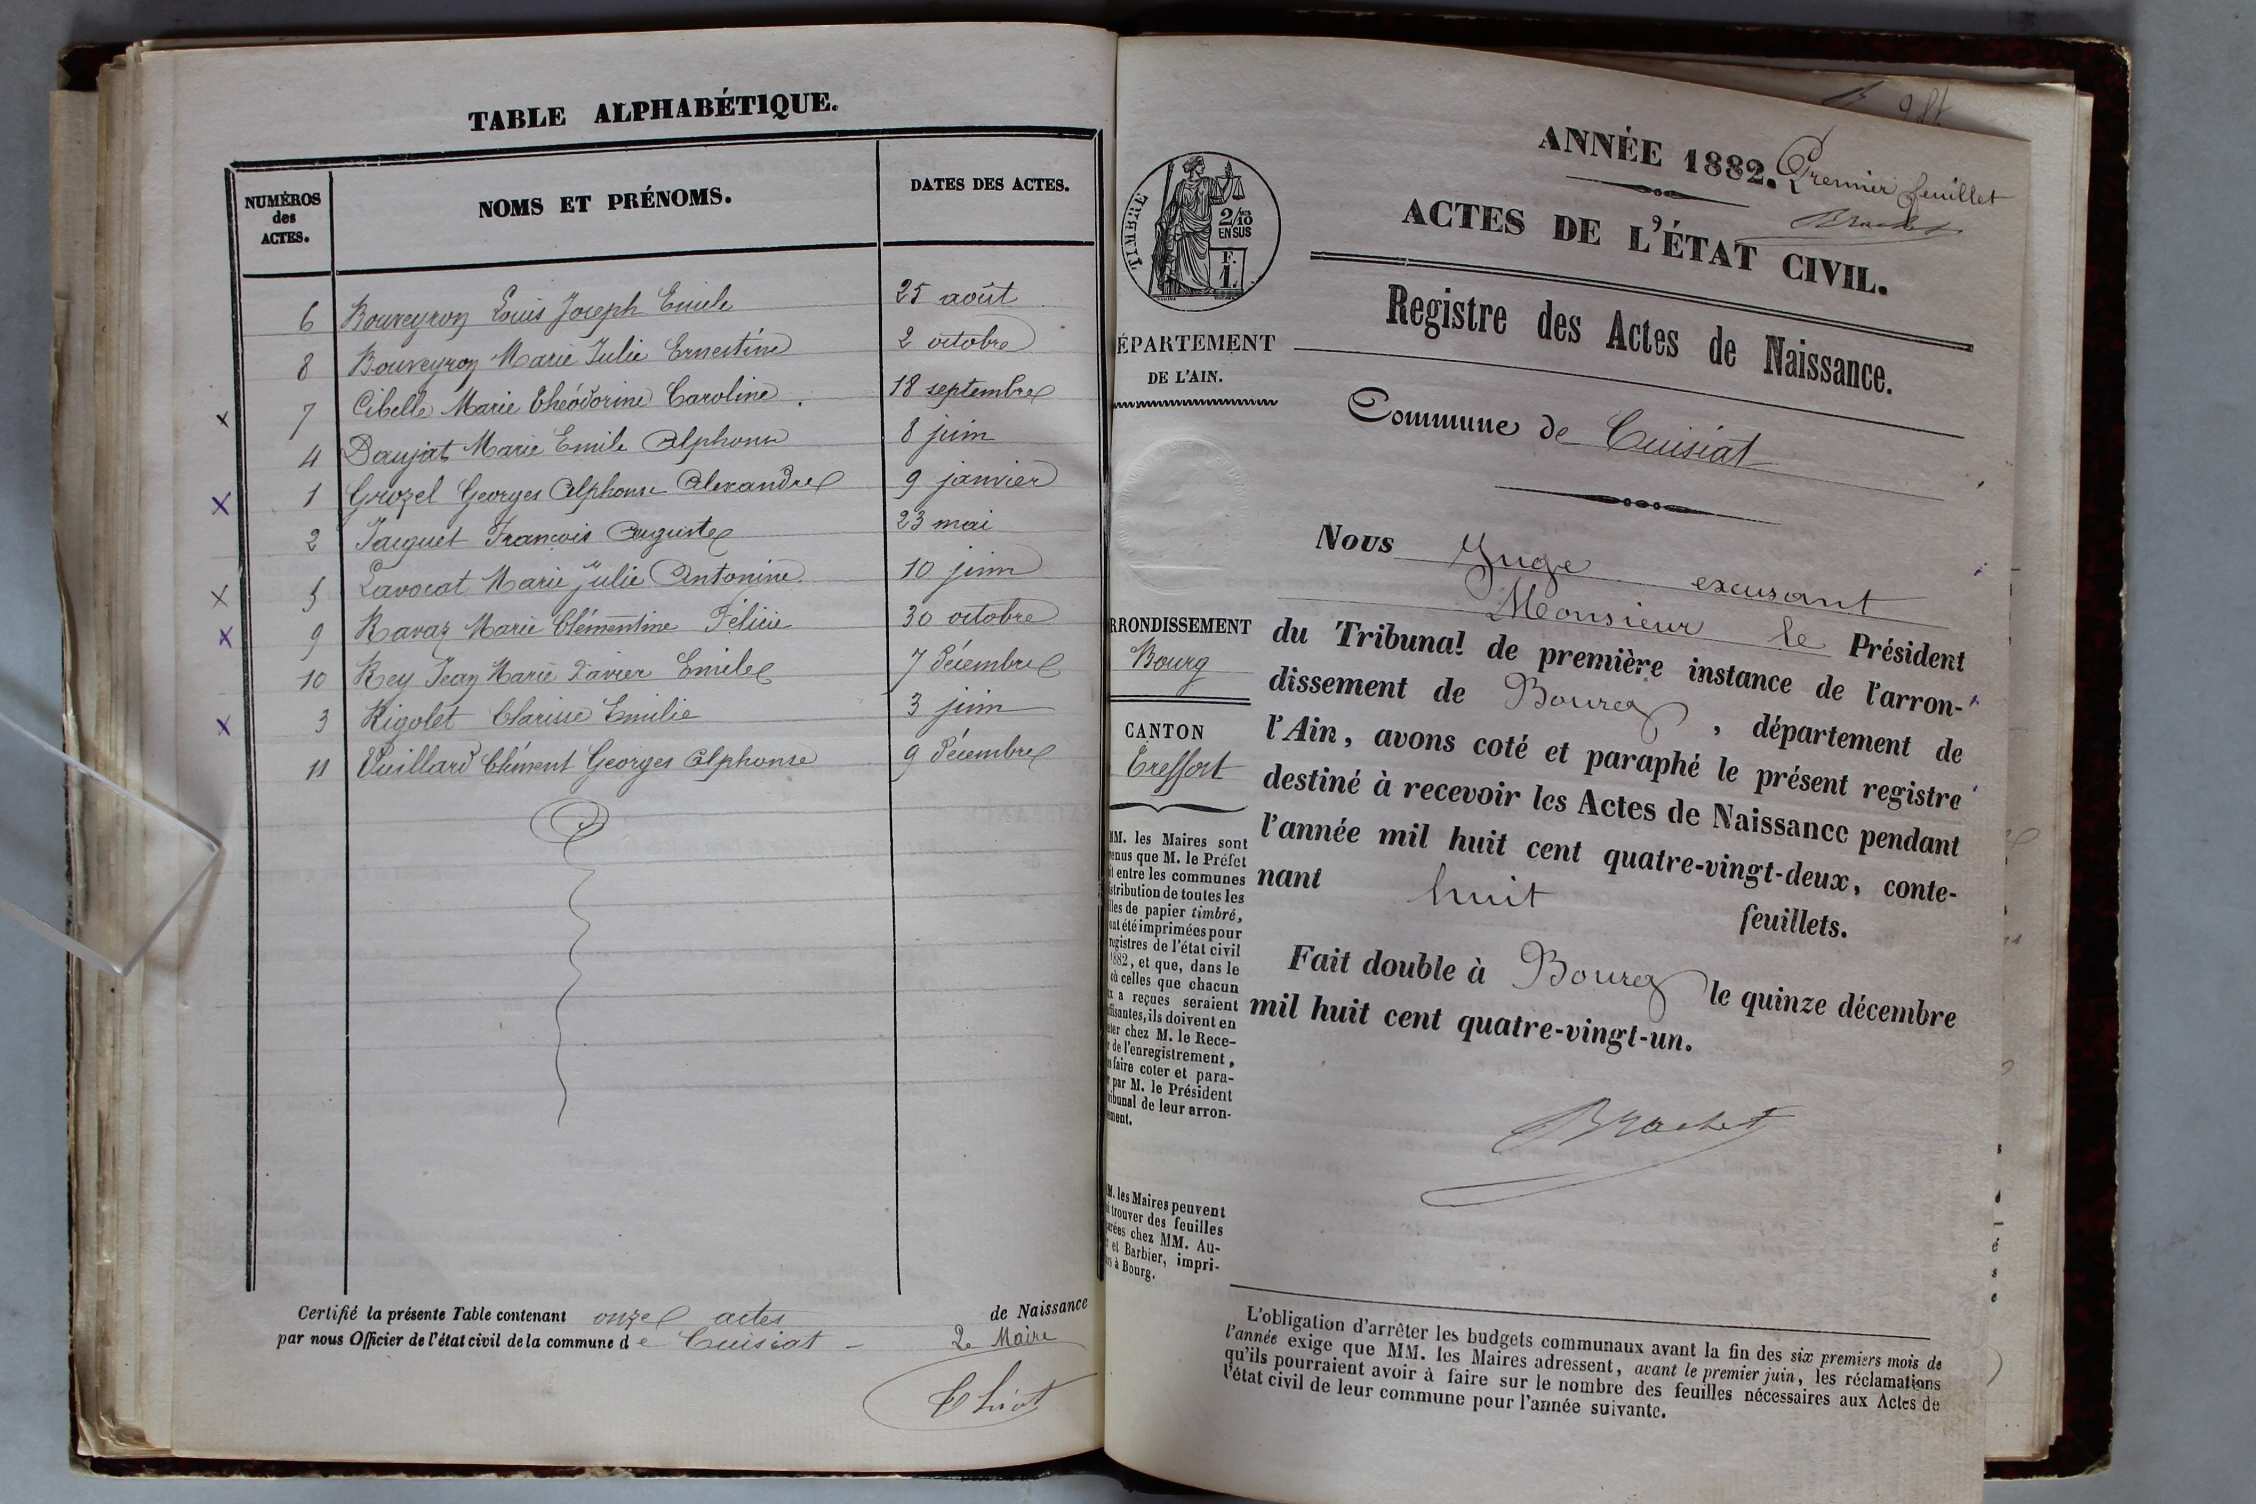 TABLE ALPHABÉTIQUE.
NUMÉROS
des
ACTES.
NOMS ET PRÉNOMS.
DATES DES ACTES.
6 Bouveyron Louis Joseph Emile 25 août
8 Bouveyron Marie Julie Ernestine 2 octobre
x 7 Cibelle Marie Théodorine Caroline 18 septembre
4 Daujat Marie Emile Alphonse 8 juin
x 1 Grozel Georges Alphonse Alexandre 9 janvier
2 Jacquet François Auguste 23 mai
x 5 Lavocat Marie Julie Antonine 10 juin
x 9 Ravaz Marie Clémentine Félicie 30 octobre
10 Rey Jean Marie Xavier Emile 7 décembre
x 3 Rigolet Clarisse Emilie 3 juin
11 Vuillard Clément Georges Alphonse 9 décembre
Certifié la présente Table contenant onze actes de Naissance
par nous Officier de l'état civil de la commune de Cuisiat - Le Maire
ANNÉE 1882. Premier feuillet
Brachet
ACTES DE L'ÉTAT CIVIL.
TIMBRE
2/10
EN SUS
F.
1.
Registre des Actes de Naissance.
ÉPARTEMENT
DE L'AIN.
Commune de Cuisiat
Nous Juge excusant
Monsieur le Président
RRONDISSEMENT
Bourg
du Tribunal de première instance de l'arron-
dissement de Bourg, département de
CANTON
Treffort
l'Ain, avons coté et paraphé le présent registre
destiné à recevoir les Actes de Naissance pendant
l'année mil huit cent quatre-vingt-deux, conte-
nant huit feuillets.
MM. les Maires sont
enus que M. le Préfet
it entre les communes
stribution de toutes les
lles de papier timbré,
ont été imprimées pour
registres de l'état civil
1882, et que, dans le
où celles que chacun
ux a reçues seraient
ffisantes, ils doivent en
eter chez M. le Rece-
r de l'enregistrement,
es faire coter et para-
r par M. le Président
ribunal de leur arron-
ement.
Fait double à Bourg le quinze décembre
mil huit cent quatre-vingt-un.
Brachet
M. les Maires peuvent
i trouver des feuilles
arées chez MM. Au-
r et Barbier, impri-
rs à Bourg.
L'obligation d'arrêter les budgets communaux avant la fin des six premiers mois de
l'année exige que MM. les Maires adressent, avant le premier juin, les réclamations
qu'ils pourraient avoir à faire sur le nombre des feuilles nécessaires aux Actes de
l'état civil de leur commune pour l'année suivante.